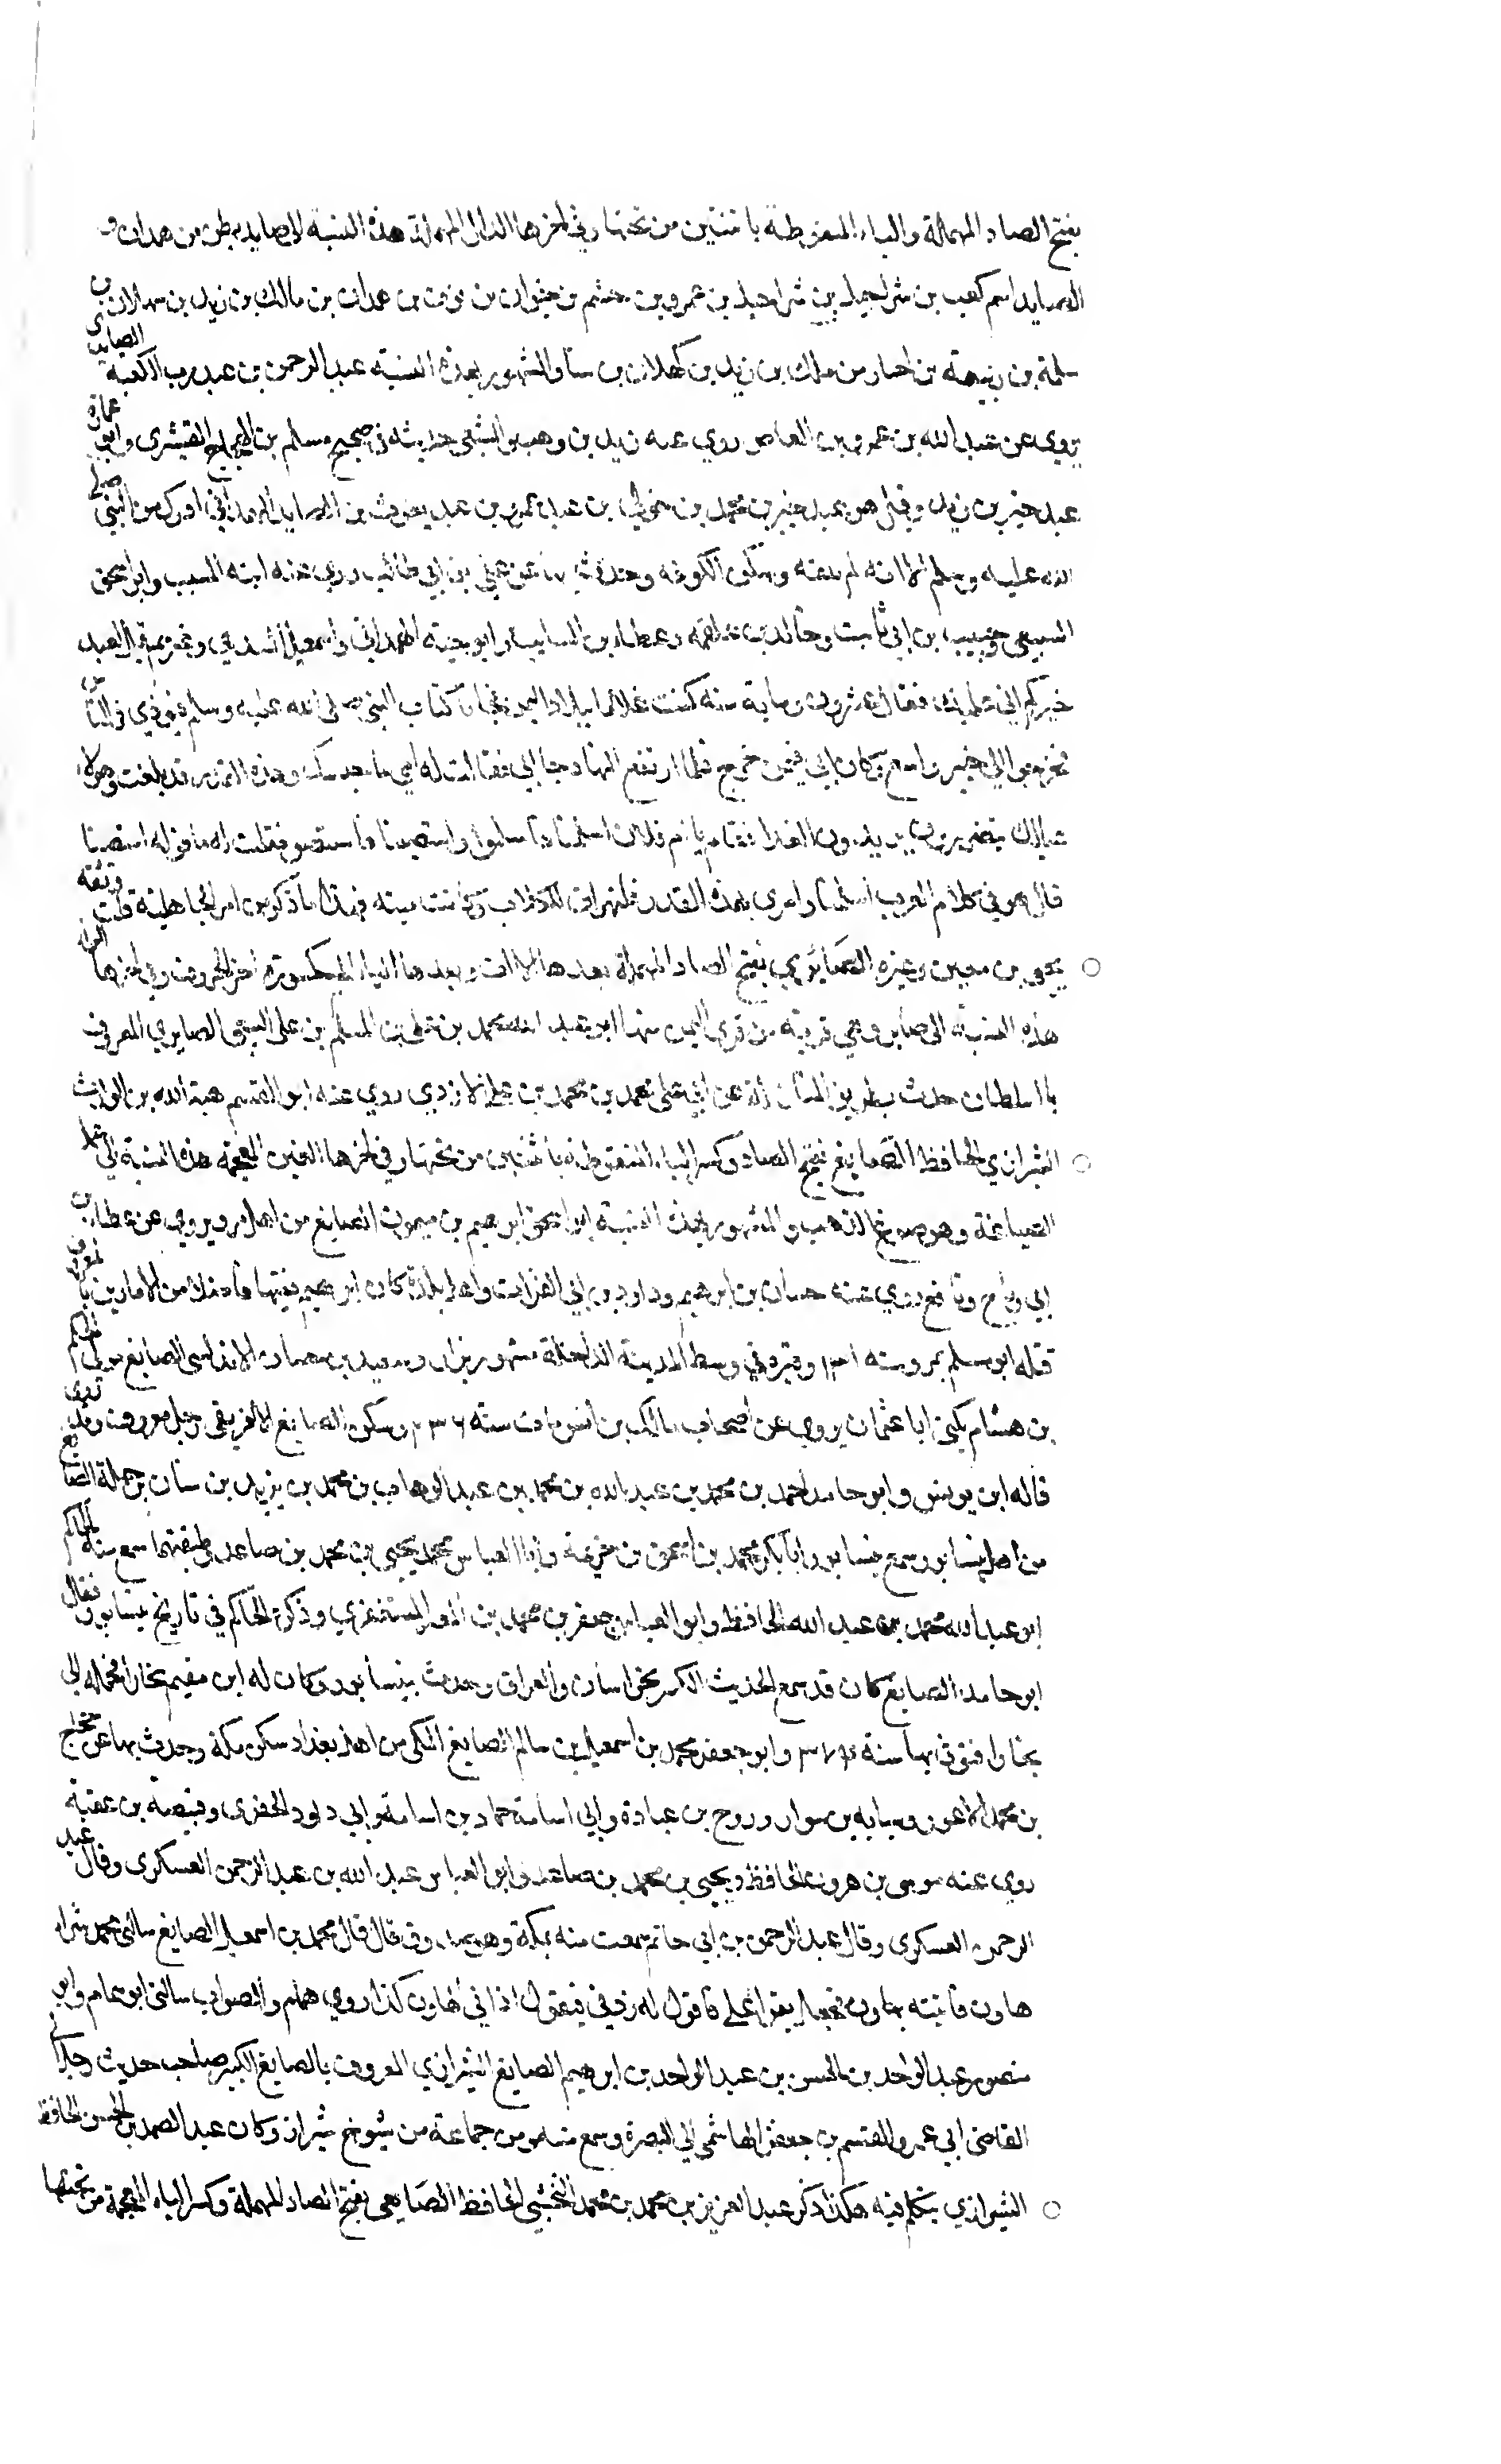 بفتح الصاد المهملة والياء المنقوطة باثنتين من تحتها وفي اخرها الدال المهملة هذه النسبة الى صايد بطن من همدان و
الصايد اسم كعب بن شراحيل بن شراحيل بن عمرو بن جشم بن حيوان بن نوف بن همدان بن مالك بن زيد بن سهلان بن
سلمة بن ربيعة بن احبار من ملك بن زيد بن كهلان بن سبا والمشهور بهذه النسبة عبد الرحمن بن عبد رب الكعبة الصايدى
يروي عن عبد الله بن عمرو بن العاص روي عنه زيد بن وهب والشعبي حديثه في صحيح مسلم بن الحجاج القشيري وابو عمارة
عبد خير بن زيد وقيل هو عبد خير بن محمد بن خولي بن عبد عمرو بن عبد يغوث بن الصايد الهمداني ادرك زمن النبي صلى
الله عليه وسلم الا انه لم يلقه وسكن الكوفة وحدث بها عن علي بن ابي طالب روي عنه ابنه المسيب وابو اسحق
السبيعي وحبيب بن ابي ثابت وخالد بن علقمة وعطا بن السايب وابو حية الهمداني واسمعيل السدي وغيرهم قيل لعبد
خير كم اتى عليك فقال عشرون وماية سنة كنت غلاما ببلاد اليمن فجانا كتاب النبي صلى الله عليه وسلم فنودي في الناس
فخرجوا الى خير واسع وكان ابي فيمن خرج فلما ارتفع النهار جا ابي فقالت له امي ما حبسك وهذه القدر قد بلغت وهولاء
عيالك يتضورون يريدون الغدا فقال يا ام فلان اسلمنا فاسلموا واستصبينا فاستصبو فقلت له ما قوله استصبينا
قال هو في كلام العرب اسلمنا وامري بهذه القدر فلتهراق للكلاب وكانت ميتة فهذا ما اذكر من امر الجاهلية قلت وثقه
يحيى بن معين وغيره الصَّايري بفتح الصاد المهملة بعدها الالف وبعدها الياء المكسورة اخر الحروف وفي اخرها الراء
هذه النسبة الى صاير وهي قرية من قرى اليمن منها ابو عبد الله محمد بن علي بن المسلم بن علي الصايري المعروف
بالسلطان حدث بطريق المناولة عن ابي علي محمد بن محمد بن علي الازدي روي عنه ابو القسم هبة الله بن عبد الوارث
الشيرازي الحافظ الصَّايغ بفتح الصاد وكسر الياء المنقوطة باثنتين من تحتها وفي اخرها الغين المعجمة هذه النسبة الى عمل
الصياغة وهو صوغ الذهب والمشهور بهذه النسبة ابو اسحق ابرهيم بن ميمون الصايغ من اهل مرو يروي عن عطا بن
ابي رباح ونافع روي عنه حسان بن ابرهيم وداود بن ابي الفرات واهل بلده كان ابرهيم فقيها فاضلا من الامارين بالمعروف
قتله ابو مسلم بمرو سنة ١٣١ وقبره في وسط المدينة الداخلة مشهور يزار وسعيد بن حسان الاندلسي الصايغ مولى الحكم
بن هشام يكنى ابا عثمان يروي عن اصحاب مالك بن انس مات سنة ٢٣٦ وسكن الصايغ الافريقي رجل معروف روى
قاله ابن يونس وابو حامد احمد بن محمد بن عبد الله بن محمد بن عبد الوهاب بن محمد بن يزيد بن سنان بن جبلة الصايغ
من اهل نيسابور سمع بنيسابور ابا بكر محمد بن اسحق بن خزيمة وابا العباس محمد يحيى بن محمد بن صاعد وطبقتهما سمع منه الحاكم
ابو عبد الله محمد بن عبد الله الحافظ وابو العباس جعفر بن محمد بن المعتز المستغفري وذكره الحاكم في تاريخ نيسابور فقال
ابو حامد الصايغ كان قد سمع الحديث الكثير بخراسان والعراق وحدث بنيسابور وكان له ابن مقيم بخارا فحمله الى
بخارا فتوفي بها سنة وابو جعفر محمد بن اسمعيل بن سالم الصايغ المكي من اهل بغداد سكن مكة وحدث بها عن حجاج
بن محمد الاعور وشبابه بن سوار وروح بن عبادة وابي اسامة حماد بن اسامة وابي داود الحفري وقبيصة بن عقبة
روي عنه موسى بن هرون الحافظ ويحيى بن محمد بن صاعد وابو العباس عبد الله بن عبد الرحمن العسكري وقال عبد
الرحمن العسكري وقال عبد الرحمن بن ابي حاتم سمعت منه بمكة وهو صدوق قال قال محمد بن اسمعيل الصايغ سالني محمد شراء
هاون فاتيته بهاون فجعل يقرا علي فاقول له زدني فيقول اذا في الهاون كذا روي همام والصواب سالني ابو همام وابو
منصور عبد الواحد بن الحسن بن عبد الواحد بن ابرهيم الصايغ الشيرازي المعروف بالصايغ الكبير صاحب حديث رحل الى
القاضي ابي عمر والقسم بن جعفر الهاشمي الى البصرة وسمع منه ومن جماعة من شيوخ شيراز وكان عبد الصمد بن الحسن الحافظ
الشيرازي يتكلم فيه هكذا ذكر عبد العزيز بن محمد بن محمد النخشبي الحافظ الصَّايغي بفتح الصاد المهملة وكسر الياء المعجمة من تحتها